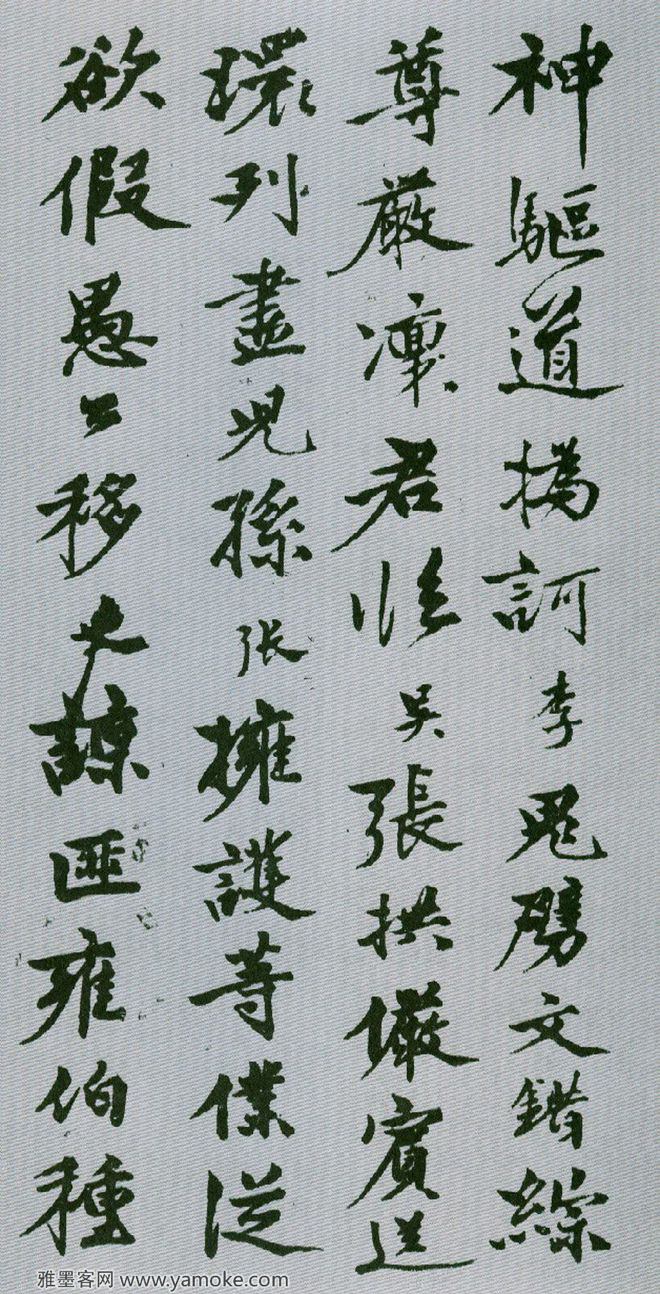 神驅道撝訶李鬼劈文錯綜
尊嚴凜君臨吳張拱儼賓送
環列盡兒孫張擁護等僕從
欲假愚公移史諒匪雍伯種
雅墨客网 www.yamoke.com